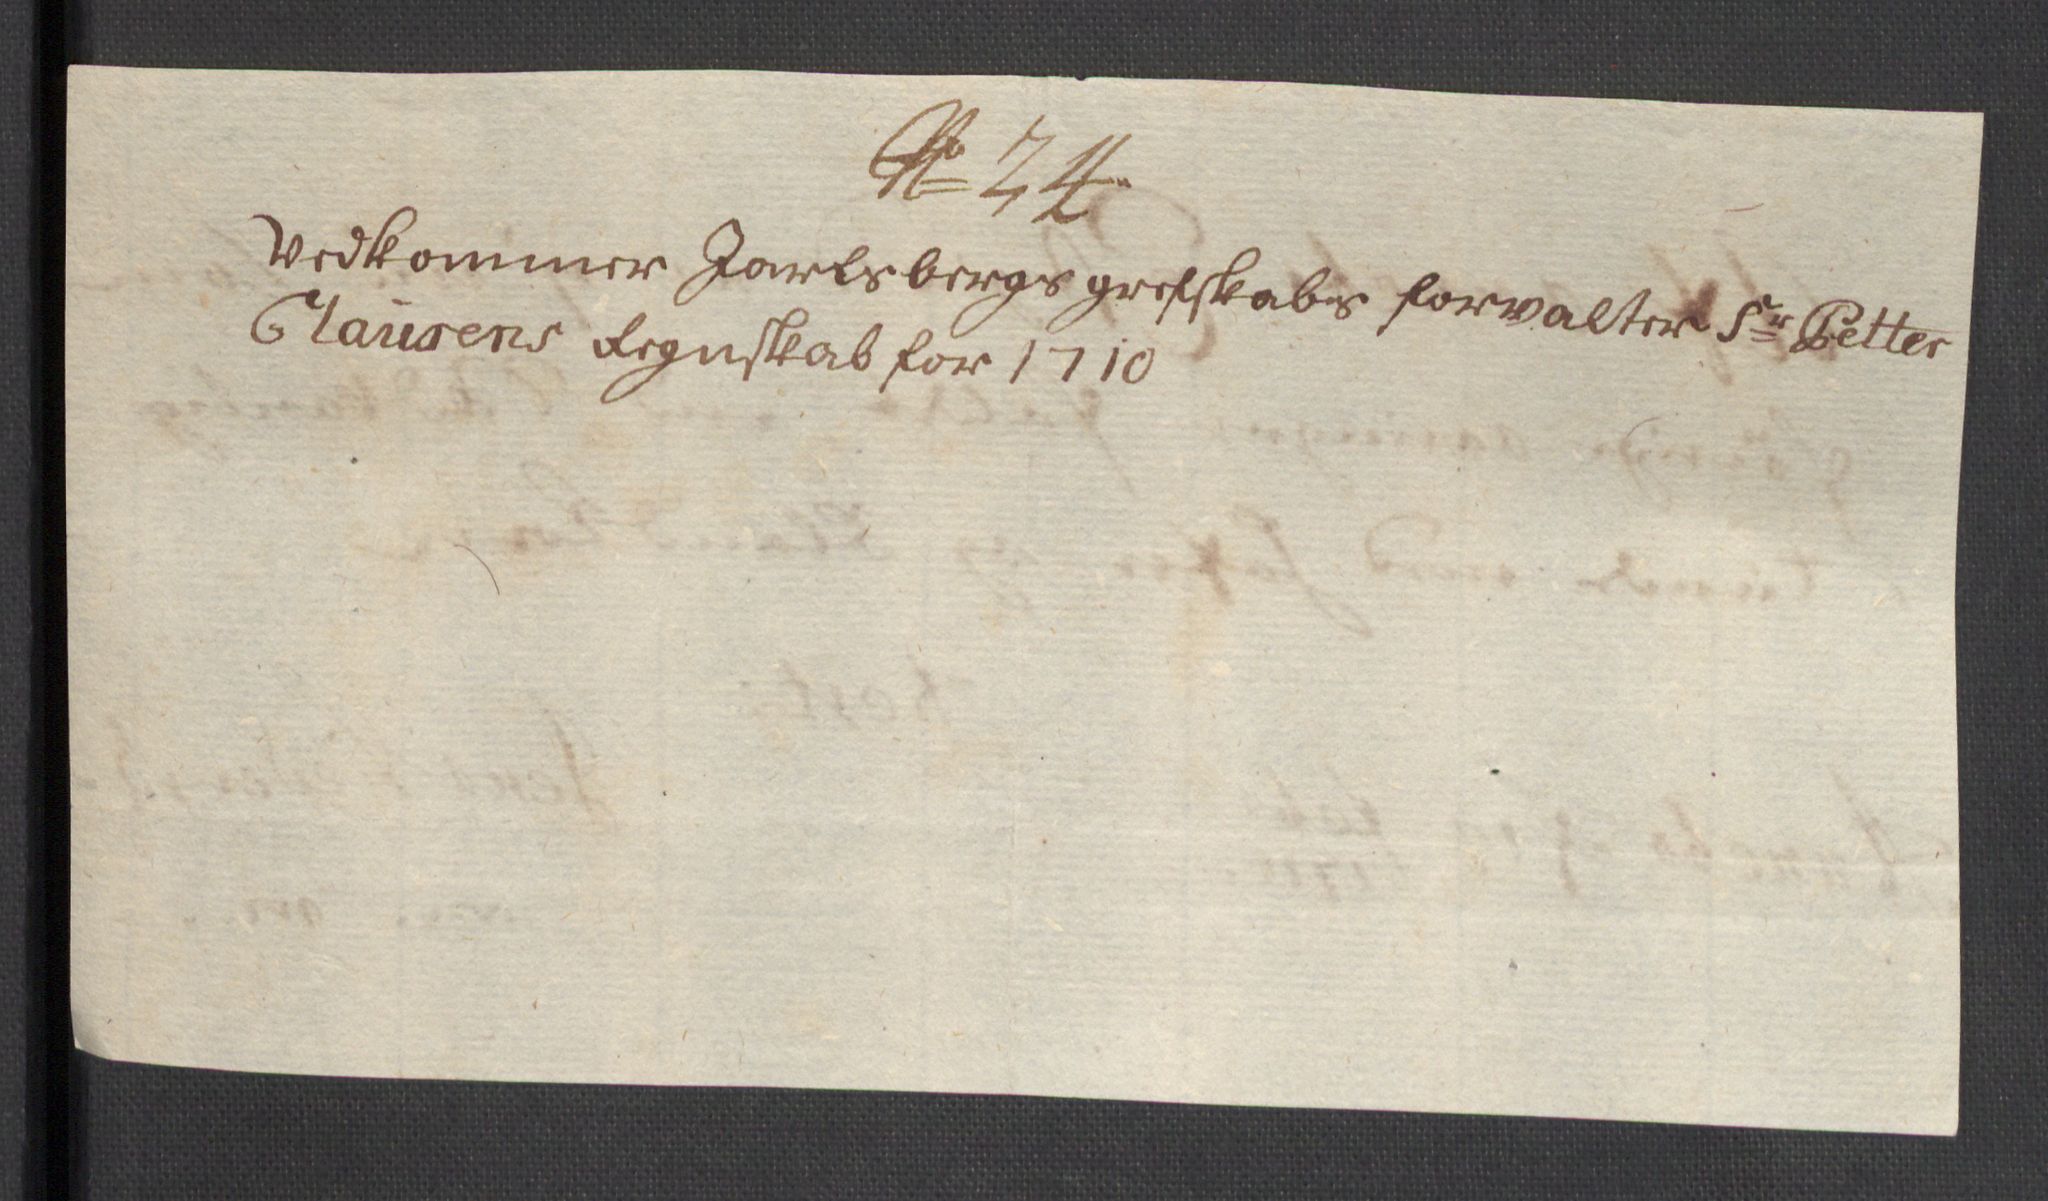 No 24
Vedkommer Jarlsbergs grefskabs forvalter Sr Petter
Claüsens Regnskab for 1710